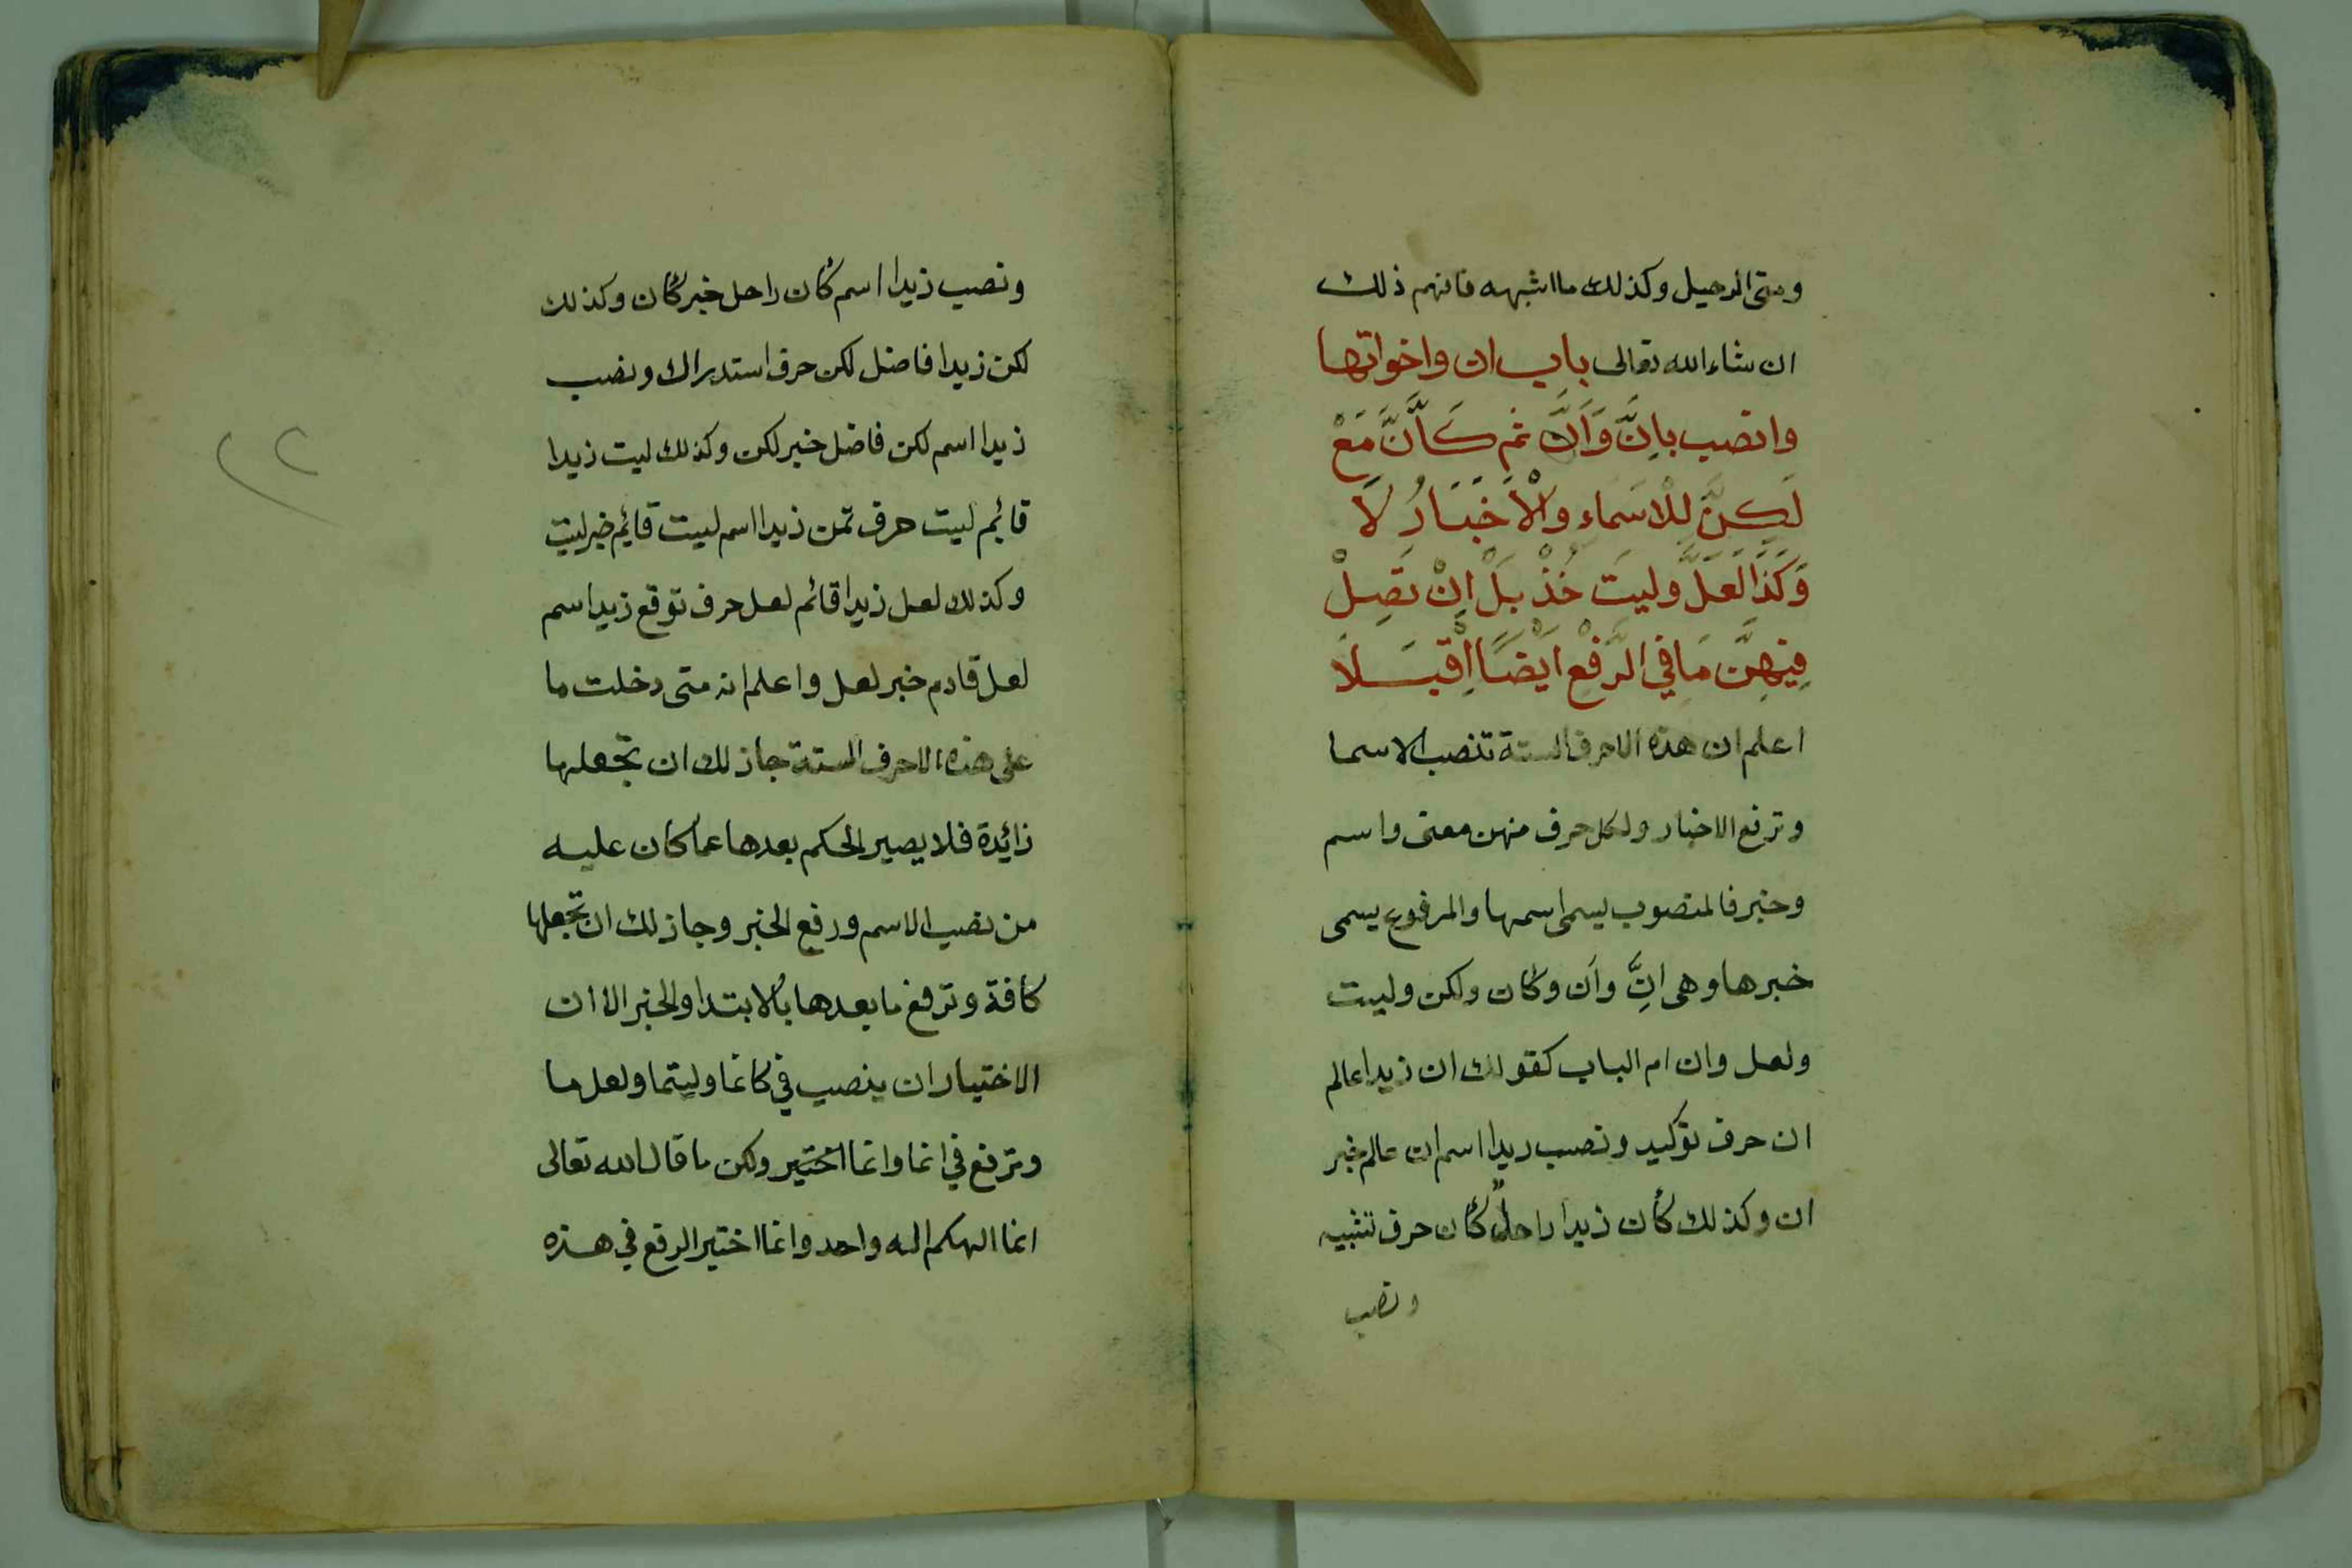 ومتى الرحيل وكذلك ما اشبهه فافهم ذلك
ان شاء الله تعالى باب ان واخواتها
وانصب بِاِنَّ وَاَنَّ ثم كَاَنَّ مَعْ
لَكِنَّ لِلْاسَماءِ والْاَخْبَارُ لَا
وَكَذَا لَعَلَّ وليتَ خُذْ بَلْ اِنْ تَصِلْ
فِيهِنَّ مَا في الرَّفْعِ اَيْضًا اِقْبَلَا
اعلم ان هذه الاحرف الستة تنصب الاسما
وترفع الاخبار ولكل حرف منهن معنى واسم
وخبر فالمنصوب يسمى اسمها والمرفوع يسمى
خبرها وهى اِنَّ وآن وكان ولكن وليت
ولعل وان ام الباب كقولك ان زيدا عالم
ان حرف توكيد ونصب زيدا اسم ان عالم خبر
ان وكذلك كأن زيدا راحلٌ كأن حرف تشبيه
ونصب
ونصب زيدا اسم كأن راحل خبر كأن وكذلك
لكن زيدا فاضل لكن حرف استدراك ونصب
زيدا اسم لكن فاضل خبر لكن وكذلك ليت زيدا
قائِم ليت حرف تمن زيدا اسم ليت قائِم خبر ليت
وكذلك لعل زيدا قائم لعل حرف توقع زيد اسم
لعل قادم خبر لعل واعلم انه متى دخلت ما
على هذه الاحرف الستة جاز لك ان تجعلها
زائِدة فلا يصير الحكم بعدها عما كان عليه
من نصب الاسم ورفع الخبر وجاز لك ان تجعلها
كافة وترفع ما بعدها بالابتدا والخبر الا ان
الاختيار ان ينصب في كانما وليتما ولعل ما
وترفع في انما وانما اختير ولكن ما قال الله تعالى
انما الهكم اله واحد وانما اختير الرفع في هذه
٢٢